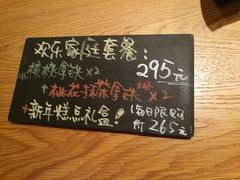 欢乐家庭套餐:
核桃拿铁x2 295元
+桃花抹茶拿铁大杯x2
+新年糕点礼盒! (每日限购
265元)